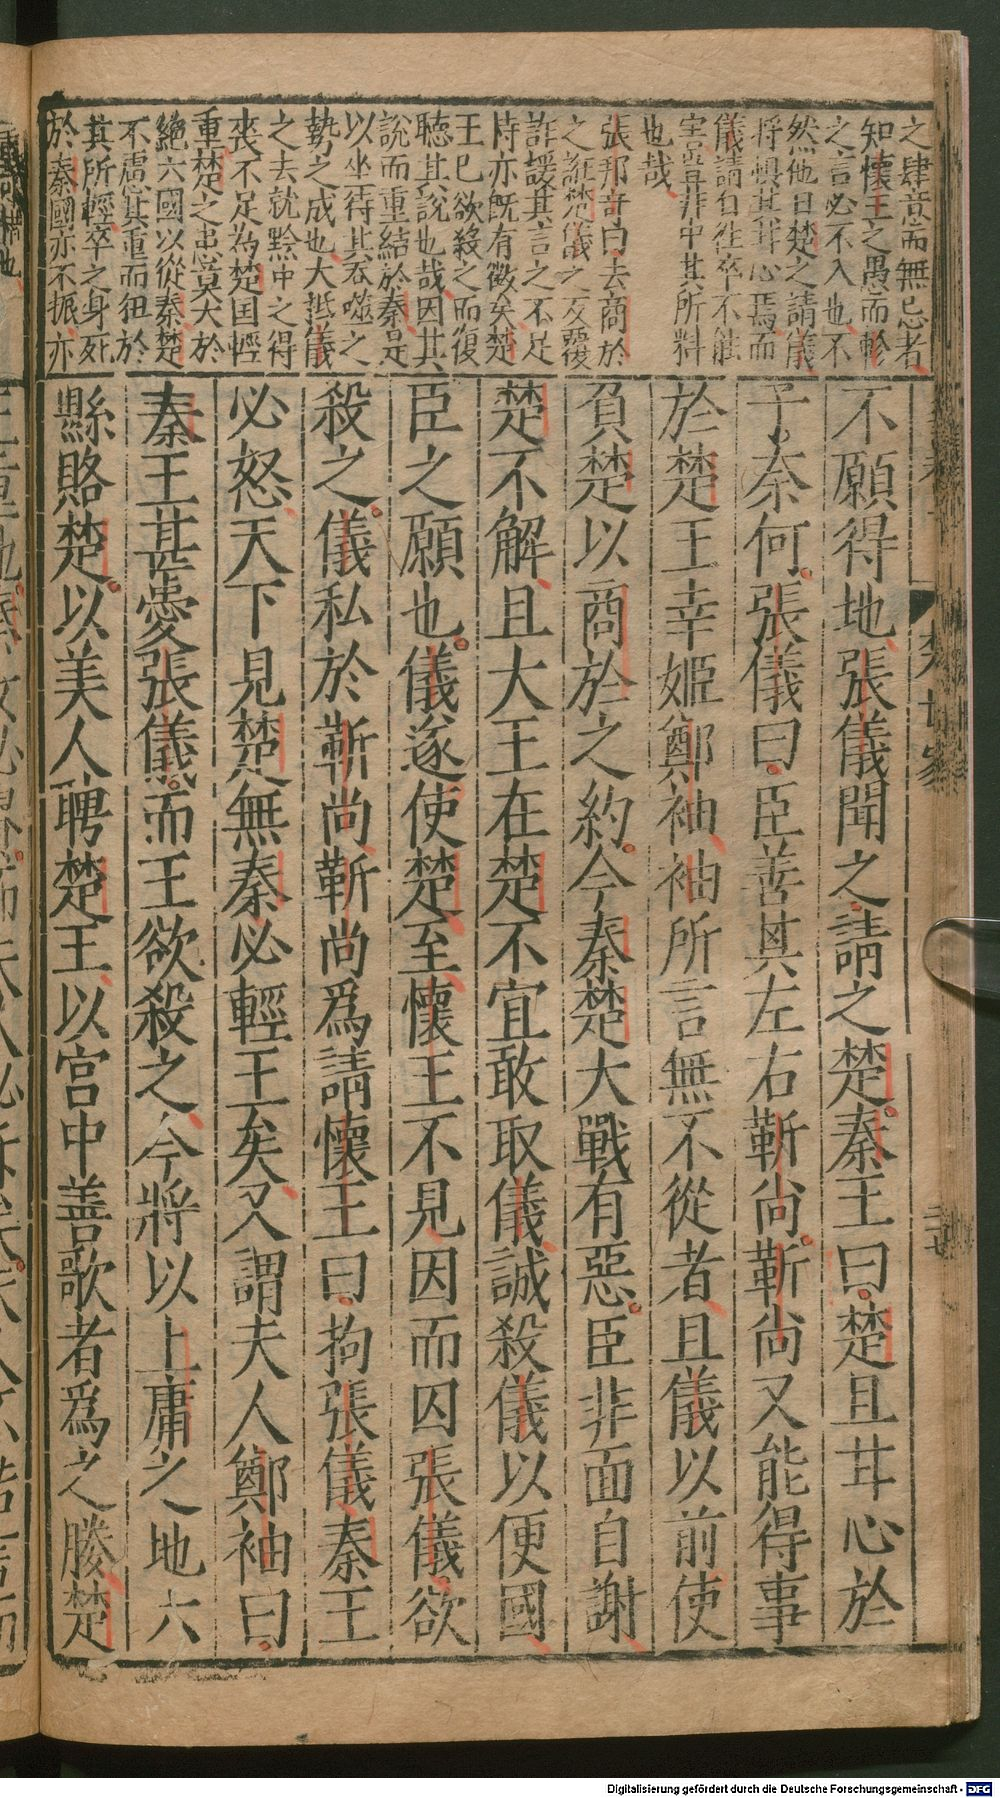 之肆意而無忌者
知懷王之愚而軫
之言必不入也不
然他日楚之請儀
將懼其甘心焉而
儀請自往卒不能
害豈非中其所料
也哉
張邦奇曰去商於
之誑楚儀之反覆
詐諼其言之不足
恃亦既有徵矣楚
王已欲殺之而復
聽其說也哉因其
說而重結於秦是
以坐待其吞噬之
勢之成也大抵儀
之去就黔中之得
喪不足為楚国輕
重楚之患莫大於
絕六國以從秦楚
不慮其重而徂於
其所輕卒之身死
於秦國亦不振亦
不願得地張儀聞之請之楚秦王曰楚且甘心於
子奈何張儀曰臣善其左右靳尚靳尚又能得事
於楚王幸姬鄭袖袖所言無不從者且儀以前使
負楚以商於之約今秦楚大戰有惡臣非面自謝
楚不解且大王在楚不宜敢取儀誠殺儀以便國
臣之願也儀遂使楚至懷王不見因而囚張儀欲
殺之儀私於靳尚靳尚爲請懷王曰拘張儀秦王
必怒天下見楚無秦必輕王矣又謂夫人鄭袖曰
秦王甚愛張儀而王欲殺之今將以上庸之地六
縣賂楚以美人聘楚王以宮中善歌者爲之媵楚
Digitalisierung gefördert durch die Deutsche Forschungsgemeinschaft - DFG